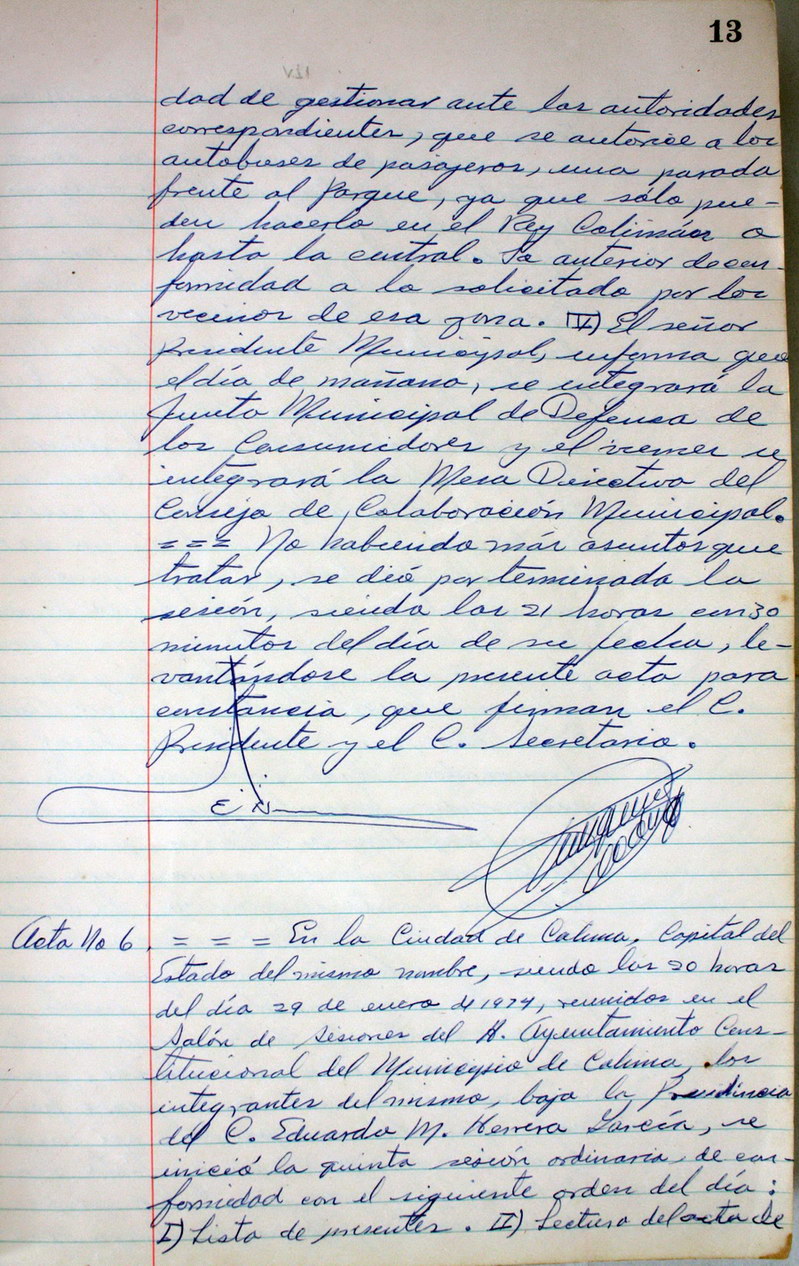 13
dad de gestionar ante las autoridades
correspondientes, que se autorice a los
autobuses de pasajeros, una parada
frente al Parque, ya que sólo pue-
den hacerlo en el Rey Colimán o
hasta la central. Lo anterior de con-
formidad a lo solicitado por los
vecinos de esa zona. IV) El señor
Presidente Municipal, informa que
el día de mañana, se integrará la
Junta Municipal de Defensa de
los Consumidores y el viernes se
integrará la Mesa Directiva del
Consejo de Colaboración Municipal.
= = = No habiendo más asuntos que
tratar, se dió por terminada la
sesión, siendo las 21 horas con 30
minutos del día de su fecha, le-
vantándose la presente acta para
constancia, que firman el C.
Presidente y el C. Secretario.
Acta No 6. = = = En la Ciudad de Colima, Capital del
Estado del mismo nombre, siendo las 20 horas
del día 29 de enero de 1974, reunidos en el
Salón de Sesiones del H. Ayuntamiento Cons-
titucional del Municipio de Colima, los
integrantes del mismo, bajo la Presidencia
del C. Eduardo M. Herrera García, se
inició la quinta sesión ordinaria de con-
formidad con el siguiente orden del día:
I) Lista de presentes. II) Lectura del acta de